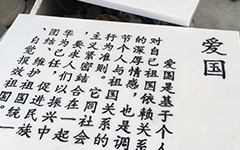 爱国
爱国是基于个人
对自己祖国依赖关系
的深厚情感，也是调
节个人与祖国关系的
行为准则。它同社会
主义紧密结合在一起
要求人们以振兴中
华为己任，促进民族
团结、维护祖国统一
自觉报效祖国